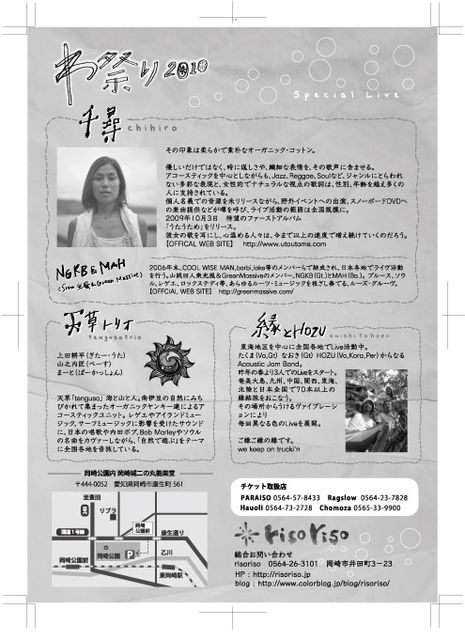 わ祭り2010
Special Live
千尋 chihiro
その印象は柔らかで素朴なオーガニック・コットン。
優しいだけではなく、時に逞しさや、繊細な表情を、その歌声に含ませる。
アコースティックを中心としながらも、Jazz、Reggae、Soulなど、ジャンルにとらわれ
ない多彩な表現と、女性的でナチュラルな視点の歌詞は、性別、年齢を越え多くの
人に支持されている。
個人名義での音源を未リリースながら、野外イベントへの出演、スノーボードDVDへ
の楽曲提供などが噂を呼び、ライブ活動の範囲は全国規模に。
2009年10月3日　待望のファーストアルバム
「うたうため」をリリース。
彼女の歌を耳にし、心温める人々は、今まで以上の速度で増え続けていくのだろう。
【OFFICAL WEB SITE】　http://www.utoutame.com
NGKB & MAH
(from 光風 & Green Massive)
2006年末、COOL WISE MAN,barbi,lake等のメンバーらで結成され、日本各地でライヴ活動
を行う。山梨田人奏光風&GreenMassiveのメンバー、NGKB(Gt.)とMAH(Ba.)。ブルース、ソウ
ル、レゲエ、ロックステディ等、あらゆるルーツ・ミュージックを枝ざし奏でる、ルーズ・グルーヴ。
【OFFCAL WEB SITE】　http://greenmassive.com/
天草トリオ
tengusatrio
上田耕平(ぎたー・うた)
山之内匠(べーす)
まーと(ぱーかっしょん)
天草「tengusa」 海と山と人。南伊豆の自然にみち
びかれて集まったオーガニックヤンキー達によるア
コースティックユニット。レゲエやアイランドミュー
ジック、サーフミュージックに影響を受けたサウンド
に、日本の唱歌や内田ボブ、Bob Marleyやソウル
の名曲をカヴァーしながら、「自然で遊ぶ」をテーマ
に全国各地を音残している。
縁とHOZU
enishitohozu
東海地区を中心に全国各地でLive活動中。
たくま(Vo,Gt) なおき(Gt) HOZU (Vo,Kora,Per) からなる
Acoustic Jam Band。
昨年の春より3人でのLiveをスタート。
奄美大島、九州、中国、関西、東海、
北陸と日本全国で70本以上の
縁結旅をおこなう。
その場所からうけるヴァイブレーショ
ンにより
毎回異なる色のLiveを展開。
ご縁ご縁の縁です。
we keep on trucki'n
岡崎公園内 岡崎城二の丸能楽堂
〒444-0052　愛知県岡崎市康生町561
至豊田
リブラ
国道1号線
岡崎公園前
康生通り
岡崎公園
P
岡崎公園前
乙川
東岡崎駅
チケット取扱店
PARAISO 0564-57-8433　Ragslow 0564-23-7828
Hauoli 0564-73-2728　Chomoza 0565-33-9900
riso riso
総合お問い合わせ
risoriso　0564-26-3101　岡崎市井田町3－23
HP : http://risoriso.jp
blog : http://www.colorblog.jp/blog/risoriso/